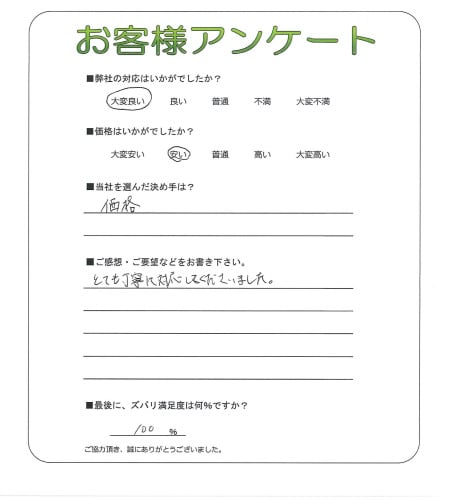 お客様アンケート
■弊社の対応はいかがでしたか？
大変良い 良い 普通 不満 大変不満
■価格はいかがでしたか？
大変安い 安い 普通 高い 大変高い
■当社を選んだ決め手は？
価格
■ご感想・ご要望などをお書き下さい。
とても丁寧に対応してくださいました。
■最後に、ズバリ満足度は何%ですか？
100 %
ご協力頂き、誠にありがとうございました。